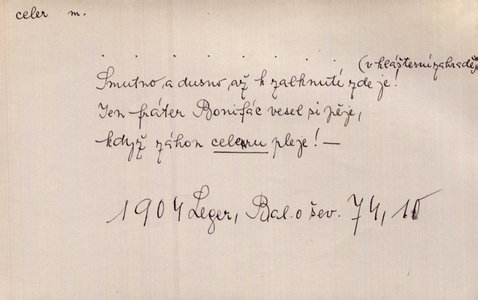 celer m.
. . . . . . . . . (v klášterní zahradě)
Smutno, a dusno, až k zalknutí zde je!
Jen fráter Bonifác vesel si pěje,
když záhon celeru pleje! —
1904 Leger, Bal. o šev. 74, 10